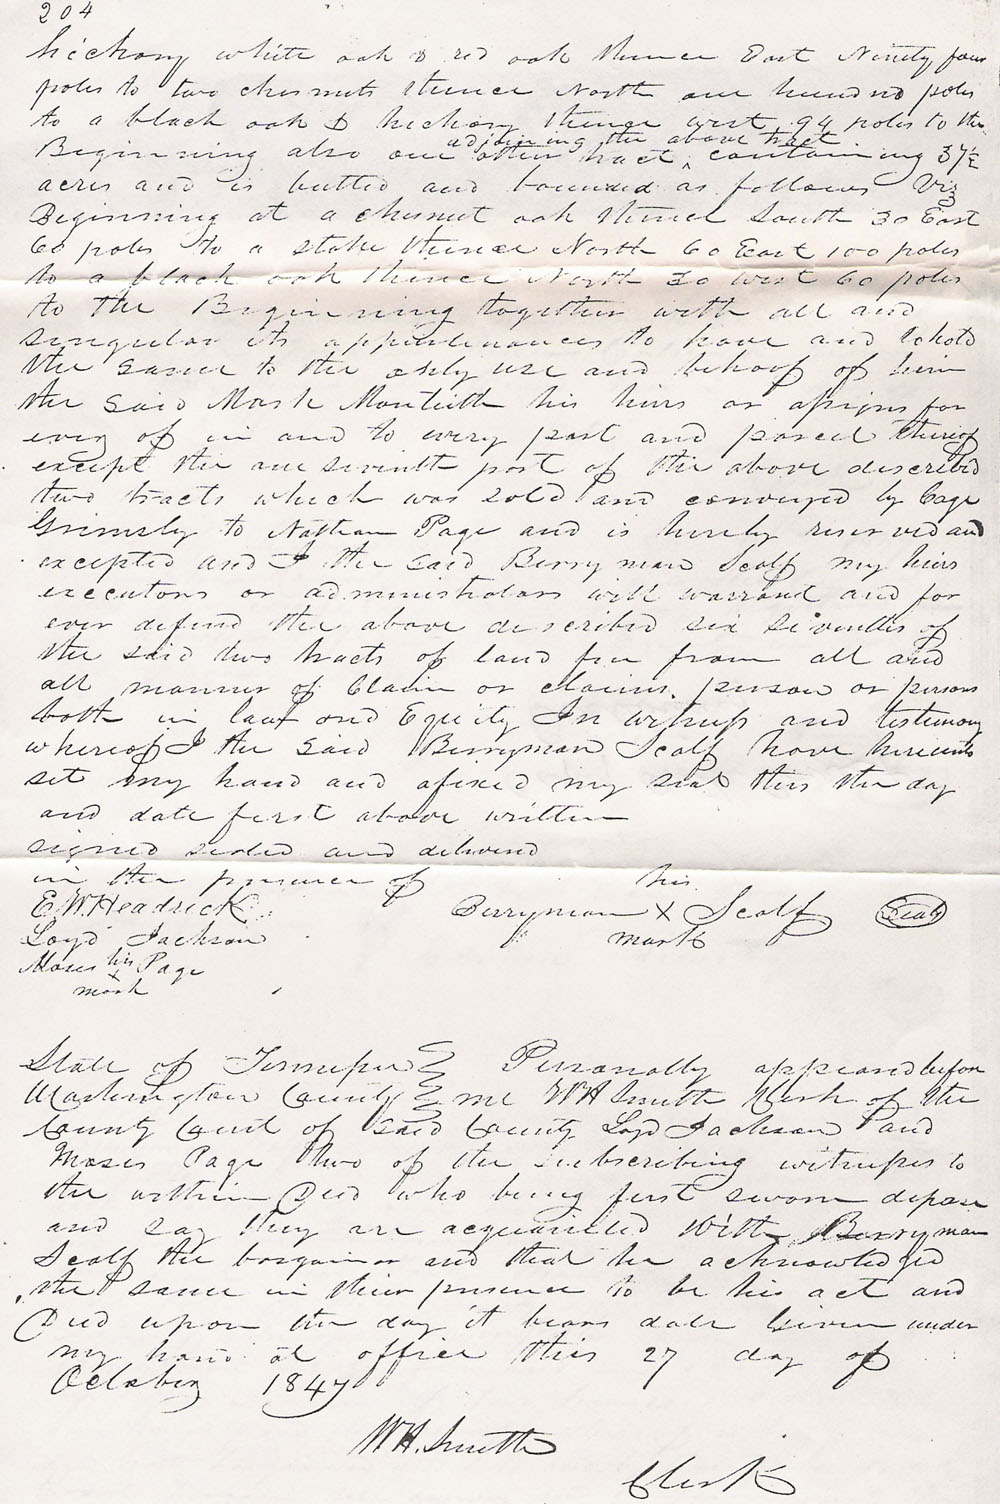 204
hickory white oak & red oak thence East Ninety four
poles to two chesnuts thence North one hundred poles
to a black oak & hickory thence west 94 poles to the
adjoining the above tract
Beginning also one other tract ^ containing 37½
acres and is butted and bounded as follows Viz
Beginning at a chesnut oak thence South 30 East
60 poles to a stake thence North 60 East 100 poles
to a black oak thence North 30 west 60 poles
to the Beginning together with all and
singular its appertenances to have and to hold
the same to the only use and behoof of him
the said Mark Monteith his heirs or assigns for
ever of in and to every part and parcel thereof
except the one seventh part of the above described
two tracts which was sold and conveyed by Cage
Grimsly to Nathan Page and is hereby reserved and
excepted and I the said Berryman Scalf my heirs
executors or administrators will warrand and for
ever defend the above described six sevenths of
the said two tracts of land free from all and
all manner of Claim or claims, person or persons
both in law and Equity In witness and testimony
whereof I the said Berryman Scalf have hereunto
set my hand and afixed my seal this the day
and date first above written
signed sealed and delivered
in the presence of
his
E. W. Headrick Berryman X Scalf Seal
Loyd Jackson mark
Moses his X Page
mark
State of Tennessee Personally appeared before
Washington County me WH Smith Clerk of the
County Court of said County Loyd Jackson and
Moses Page two of the subscribing witnesses to
the within Deed who being first sworn depose
and say they are acquainted With Berryman
Scalf the bargainor and that he acknowledged
the same in their presence to be his act and
Deed upon the day it bears date Given under
my hand at office this 27 day of
October 1847
WH. Smith
Clerk